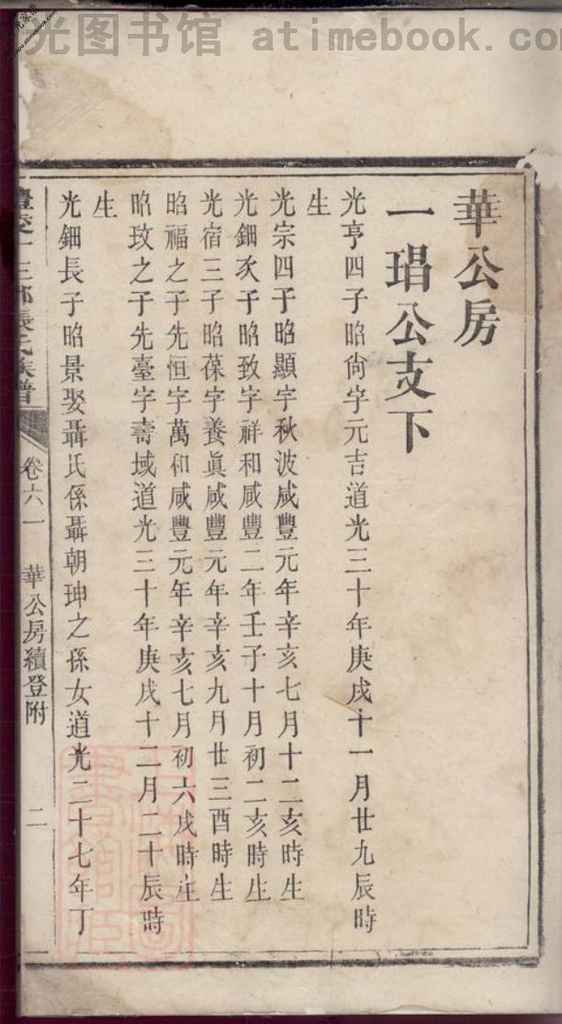 光图书馆 atimebook.co
華公房
一瑁公支下
光亨四子昭尙字元吉道光三十年庚戌十一月廿九辰時
生
光宗四子昭顯字秋波咸豐元年辛亥七月十二亥時生
光鈿次子昭致字祥和咸豐二年壬子十月初二亥時生
光宿三子昭葆字養眞咸豐元年辛亥九月廿三酉時生
昭福之子先恒字萬和咸豐元年辛亥七月初六戌時生
昭玫之子先臺字壽域道光三十年庚戌十二月二十辰時
生
光鈿長子昭景娶聶氏係聶朝珅之孫女道光二十七年丁
三都張氏族譜
卷六一
華公房續登附
二